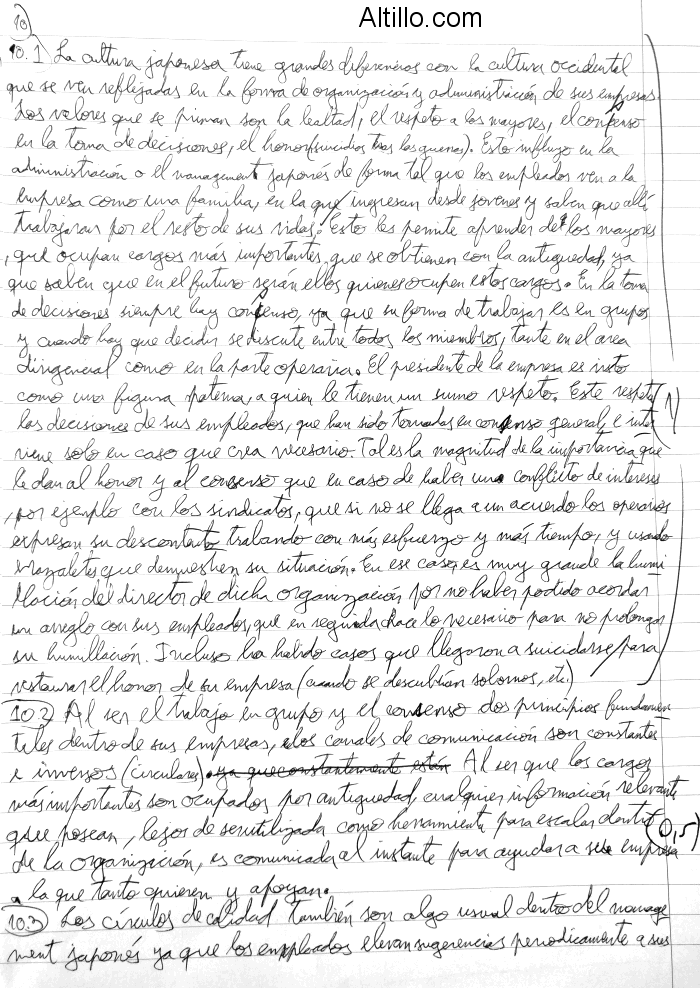 Altillo.com
10
10.1 La cultura japonesa tiene grandes diferencias con la cultura occidental
que se ven reflejadas en la forma de organización y administración de sus empresas.
Los valores que se priman son la lealtad, el respeto a los mayores, el consenso
en la toma de decisiones, el honor (suicidios tras las guerras). Esto influye en la
administración o el management japonés de forma tal que los empleados ven a la
empresa como una familia, en la que ingresan desde jovenes y saben que allí
trabajaran por el resto de sus vidas. Esto les permite aprender de los mayores
, que ocupan cargos más importantes que se obtienen con la antiguedad, ya
que saben que en el futuro serán ellos quienes ocupen estos cargos. En la toma
de decisiones siempre hay consenso, ya que su forma de trabajar es en grupos
y cuando hay que decidir se discute entre todos los miembros, tanto en el area
dirigencial como en la parte operaria. El presidente de la empresa es visto
como una figura paterna, a quien le tienen un sumo respeto. Este respeta
las decisiones de sus empleados, que han sido tomadas en consenso general, e inter
viene solo en caso que crea necesario. Tal es la magnitud de la importancia que
le dan al honor y al consenso que en caso de haber un conflicto de intereses
, por ejemplo con los sindicatos, que si no se llega a un acuerdo los operarios
expresan su descontento trabando con más esfuerzo y más tiempo, y usando
brazaletes que demuestren su situación. En ese caso, es muy grande la humi
llación del director de dicha organización por no haber podido acordar
un arreglo con sus empleados, que en seguida hace lo necesario para no prolongar
su humillación. Incluso ha habido casos que llegaron a suicidarse para
restaurar el honor de su empresa (cuando se descubrian sobornos, etc.)
1)
10.2 Al ser el trabajo en grupo y el consenso dos principios fundamen
tales dentro de sus empresas, los canales de comunicación son constantes
e inversos (circulares). ya que constantemente están Al ser que los cargos
más importantes son ocupados por antiguedad, cualquier información relevante
que posean, lejos de ser utilizada como herramienta para escalar dentro
de la organización, es comunicada al instante para ayudar a su empresa
a la que tanto quieren y apoyan.
(0,5)
10.3 Los círculos de calidad también son algo usual dentro del manage
ment japonés ya que los empleados elevan sugerencias periodicamente a sus